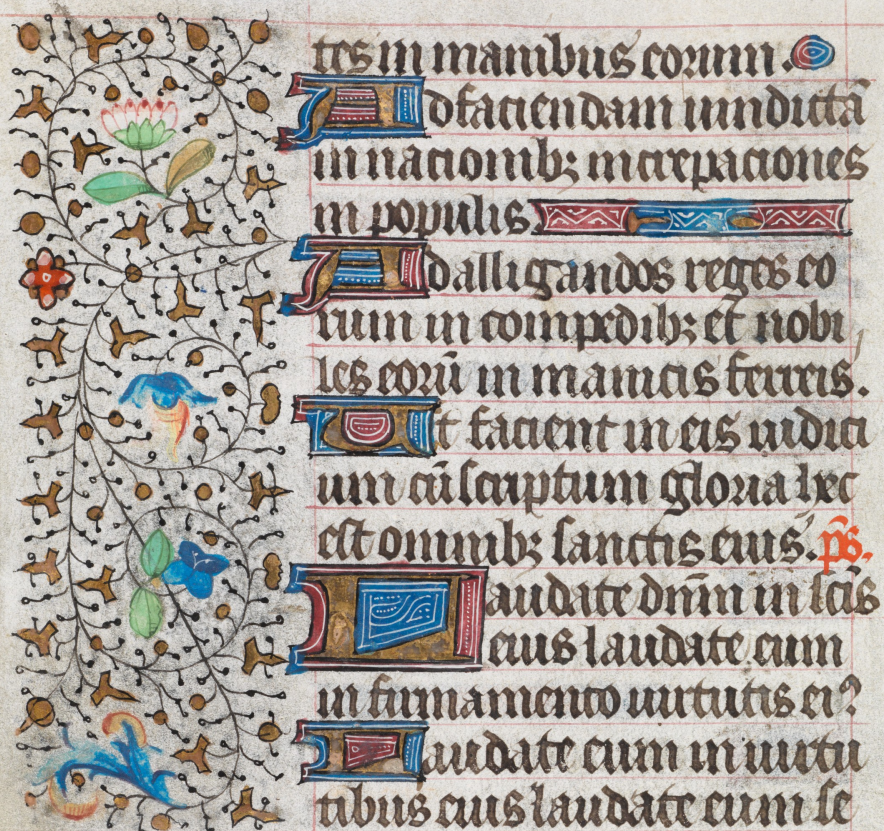 tes in manibus eorum.
Ad faciendam uindictā
in nacionibꝫ increpaciones
in populis
Ad alligandos reges eo
rum in compedibꝫ et nobi
les eorū in manicis ferreis.
Ut faciant in eis iudici
um cū scriptum gloria hec
est omnibꝫ sanctis eius. p̄s.
Laudate dn̄m in sc̄is
eius laudate eum
in firmamento uirtutis ei9
Laudate eum in uirtu
tibus eius laudate eum se